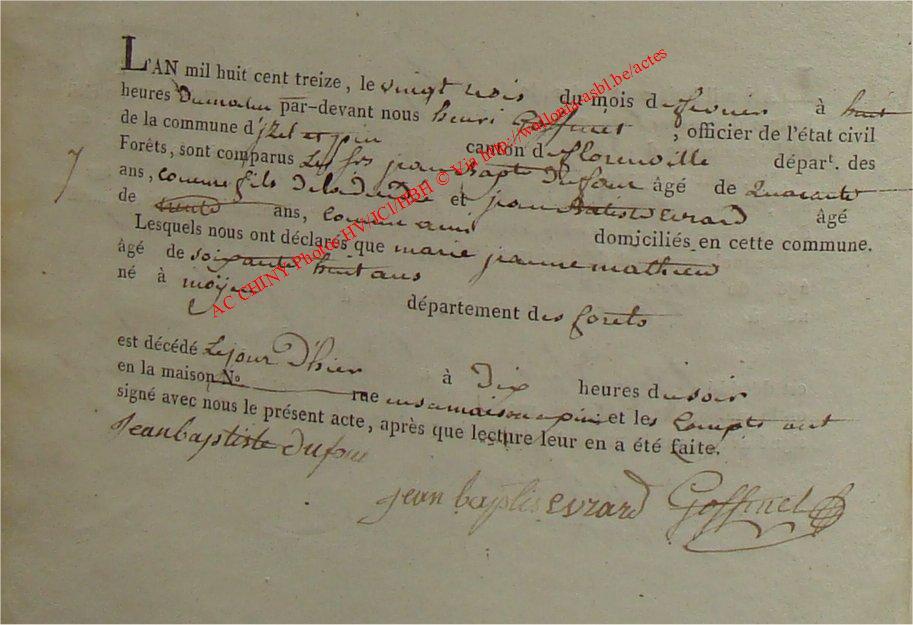 L'AN mil huit cent treize, le vingt trois du mois de fevrier à huit
heures du matin par-devant nous henri Goffinet, officier de l'état civil
de la commune d'izel et pin canton de florenville départ. des
7
Forêts, sont comparus Les srs jean bapte Dufour âgé de Quarante
ans, comme fils de la ditte et jean Batiste Evrard âgé
de trente ans, comme ami domiciliés en cette commune.
Lesquels nous ont déclaré que marie jeanne mathieu
âgé de soixante huit ans
né à moyen
département des forets
est décédé Le jour D'hier à Dix heures du soir
en la maison N.o rue en sa maison a pin et les Compts ont
signé avec nous le présent acte, après que lecture leur en a été faite.
Jeanbaptiste Dufour
jean baptis Evrard Goffinet
AC CHINY-Photos HV/ICI/HBH © Via http://wallonia.asbl.be/actes